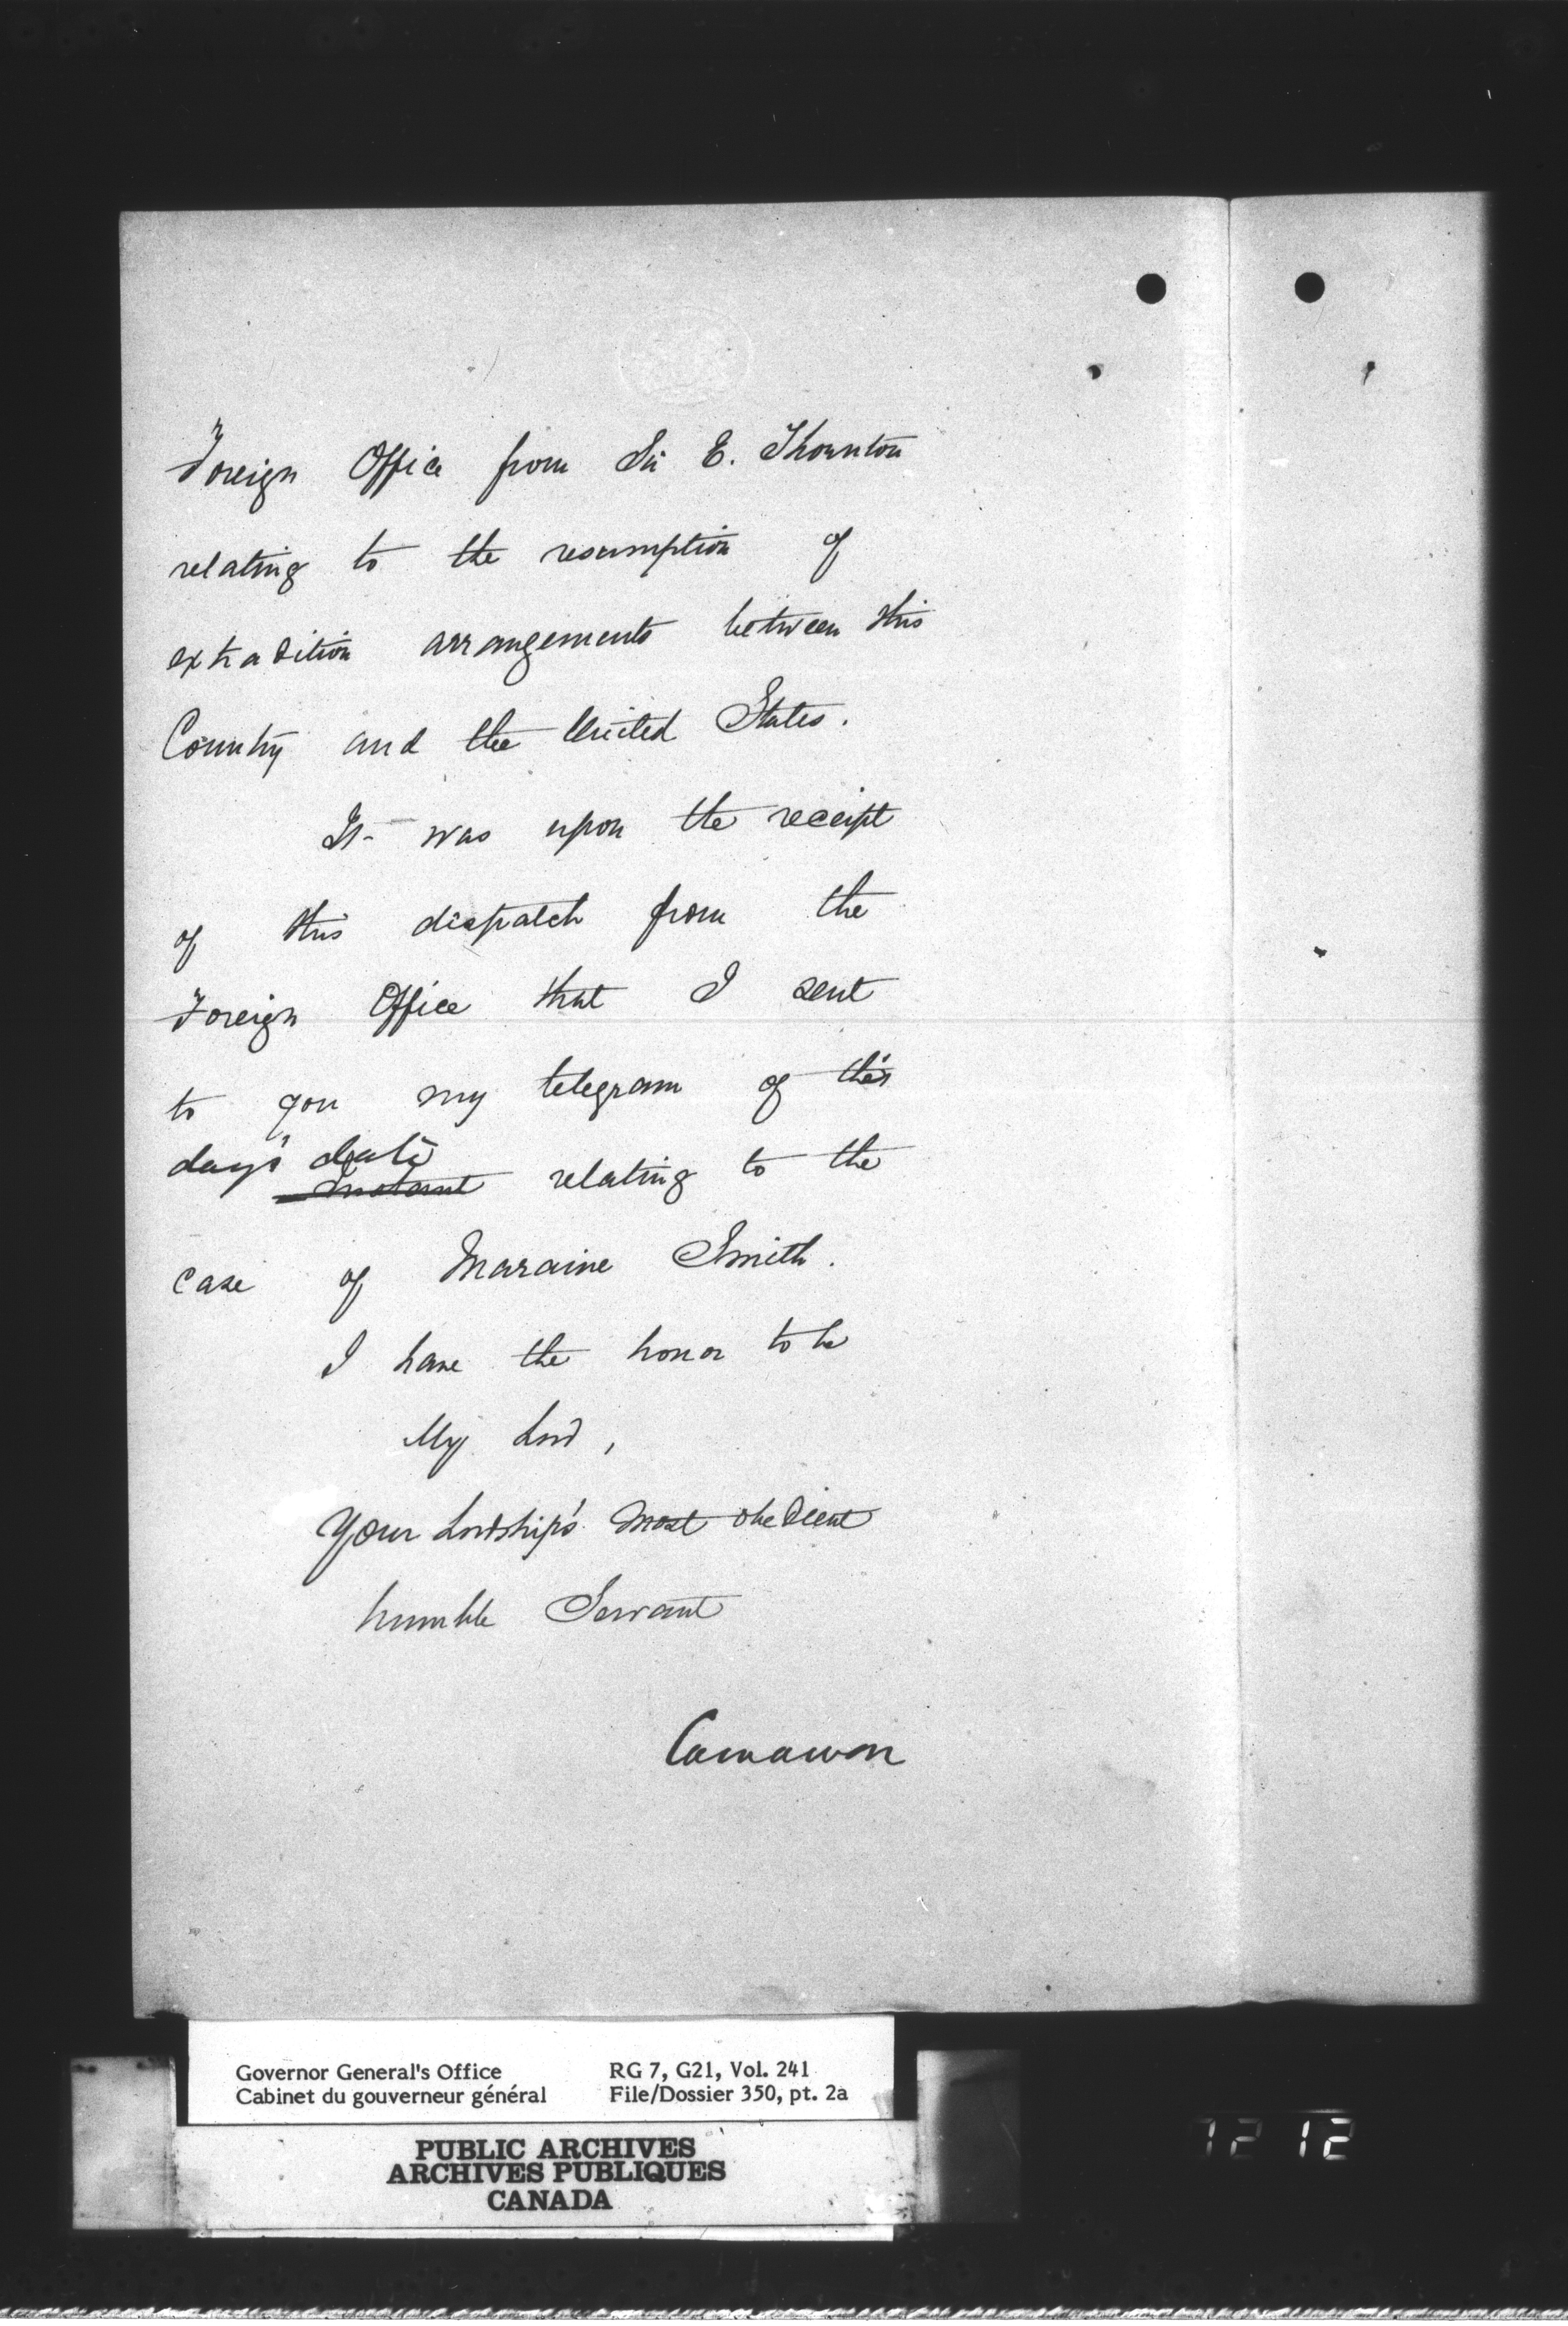 Foreign Office from Sir E. Thornton
relating to the resumption of
extradition arrangements between this
Country and the United States.
It was upon the receipt
of this dispatch from the
Foreign Office that I sent
to you my telegram of this
day's date
Instant relating to the
case of Maraine Smith.
I have the honor to be
My Lord,
Your Lordship's most obedient
humble Servant
Carnarvon
Governor General's Office RG 7, G21, Vol. 241
Cabinet du gouverneur général File/Dossier 350, pt. 2a
PUBLIC ARCHIVES
ARCHIVES PUBLIQUES
CANADA
12 12